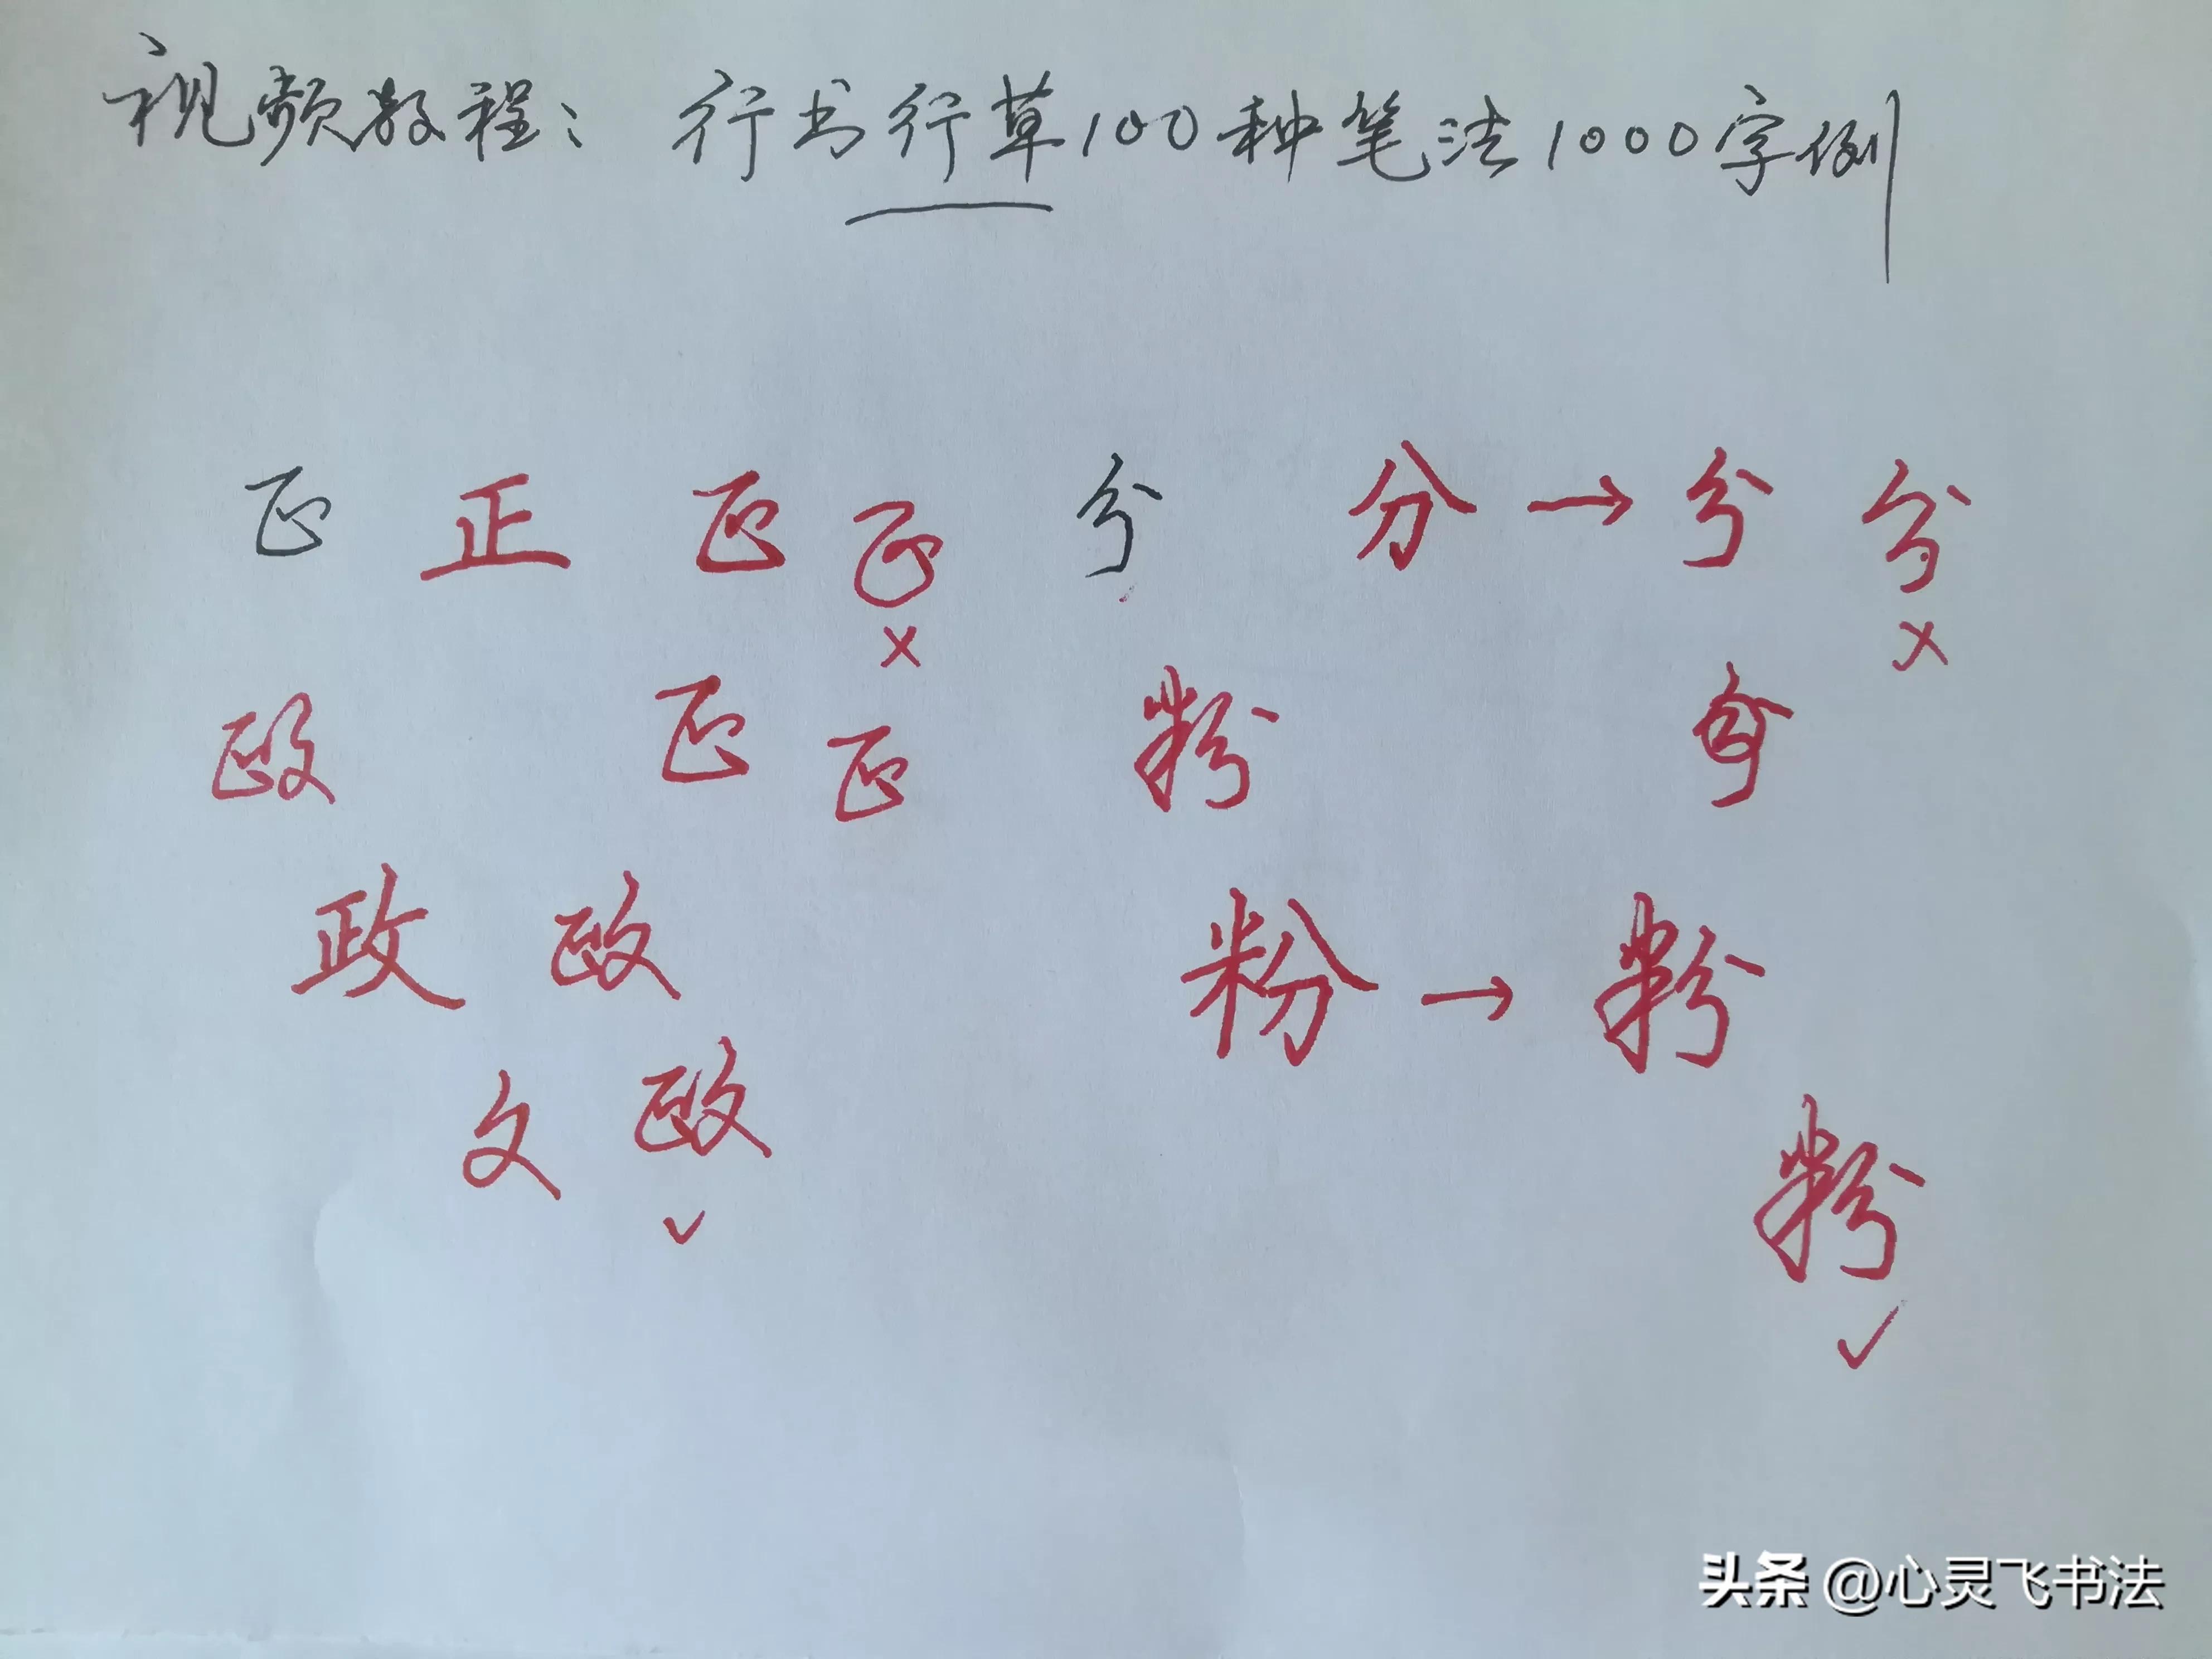 视频教程：行书行草100种笔法1000字例
正 正 正 正 分 分 → 分 分
× ×
政 正 正 粉 分
政 政 粉 → 粉
攵 政 粉
✓ ✓
头条 @心灵飞书法